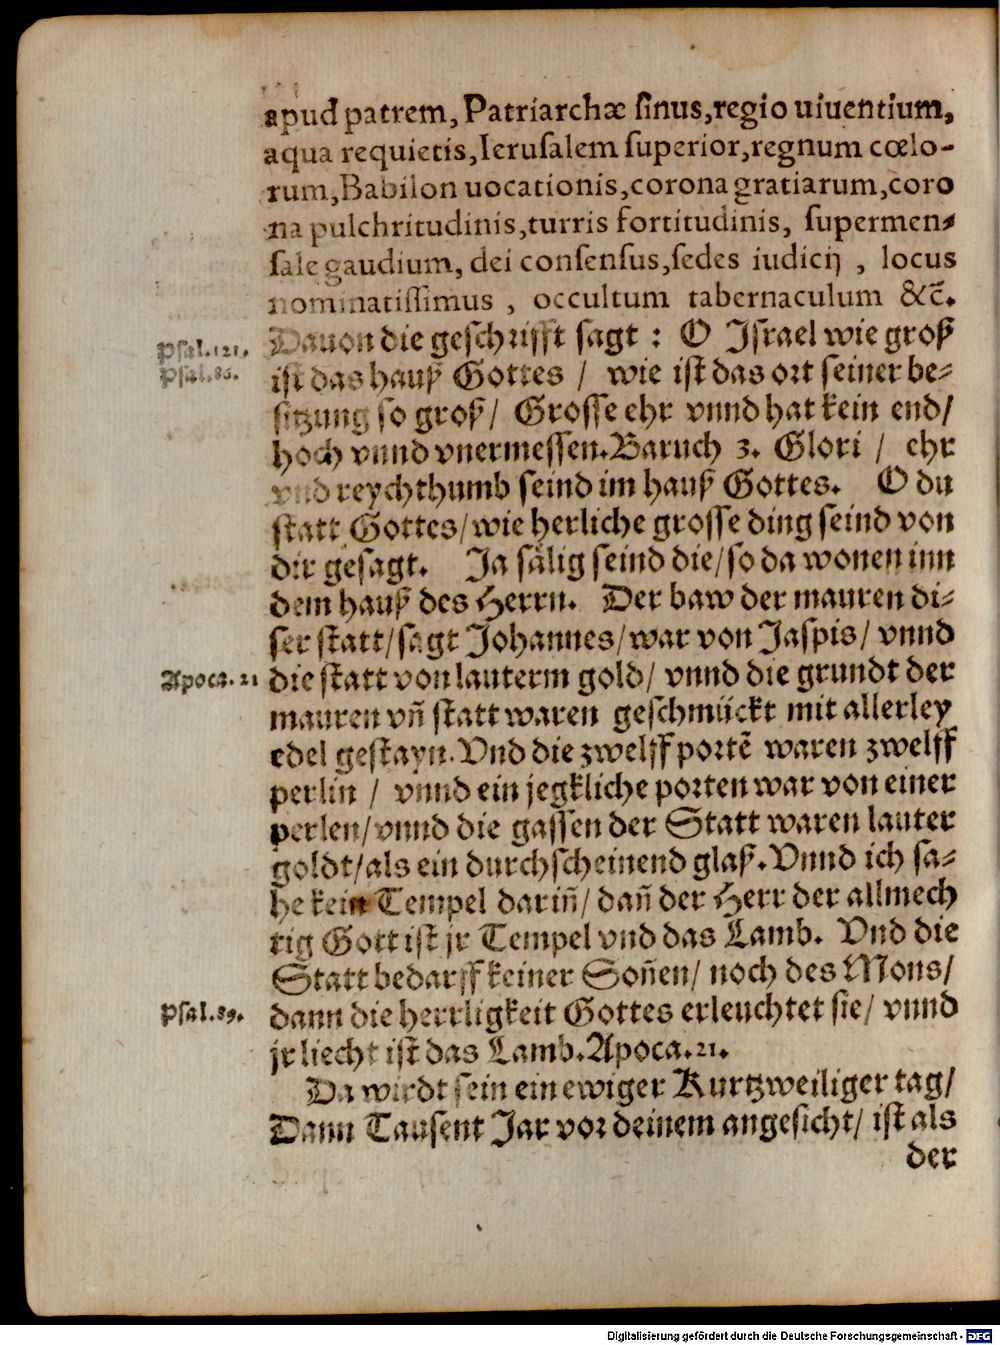 apud patrem, Patriarchæ ſinus, regio uiuentium,
aqua requietis, Ieruſalem ſuperior, regnum cœlo-
rum, Babilon uocationis, corona gratiarum, coro
na pulchritudinis, turris fortitudinis, ſupermen-
ſale gaudium, dei conſenſus, ſedes iudicij , locus
nominatiſſimus , occultum tabernaculum &c̄.
Dauon die geſchrifft ſagt : O Iſrael wie groß
Pſal. 121.
Pſal. 86.
iſt das hauß Gottes / wie iſt das ort ſeiner be-
ſitzung ſo groß / Groſſe ehr vnnd hat kein end /
hoch vnnd vnermeſſen. Baruch 3. Glori / ehr
vnd reychthumb ſeind im hauß Gottes. O du
ſtatt Gottes / wie herliche groſſe ding ſeind von
dir geſagt. Ja ſälig ſeind die / ſo da wonen inn
dem hauß des Herrn. Der baw der mauren di-
ſer ſtatt / ſagt Johannes / war von Jaſpis / vnnd
Apoca. 21
die ſtatt von lauterm gold / vnnd die grundt der
mauren vñ ſtatt waren geſchmückt mit allerley
edel geſtayn. Vnd die zwelff portē waren zwelff
perlin / vnnd ein jegkliche porten war von einer
perlen / vnnd die gaſſen der Statt waren lauter
goldt / als ein durchſcheinend glaß. Vnnd ich ſa-
he kein Tempel dariñ / dañ der Herr der allmech
tig Gott iſt jr Tempel vnd das Lamb. Vnd die
Statt bedarff keiner Soñen / noch des Mons /
Pſal. 89.
dann die herrligkeit Gottes erleuchtet ſie / vnnd
jr liecht iſt das Lamb. Apoca. 21.
Da wirdt ſein ein ewiger Kurtzweiliger tag /
Dann Tauſent Jar vor deinem angeſicht / iſt als
der
Digitalisierung gefördert durch die Deutsche Forschungsgemeinschaft - DFG